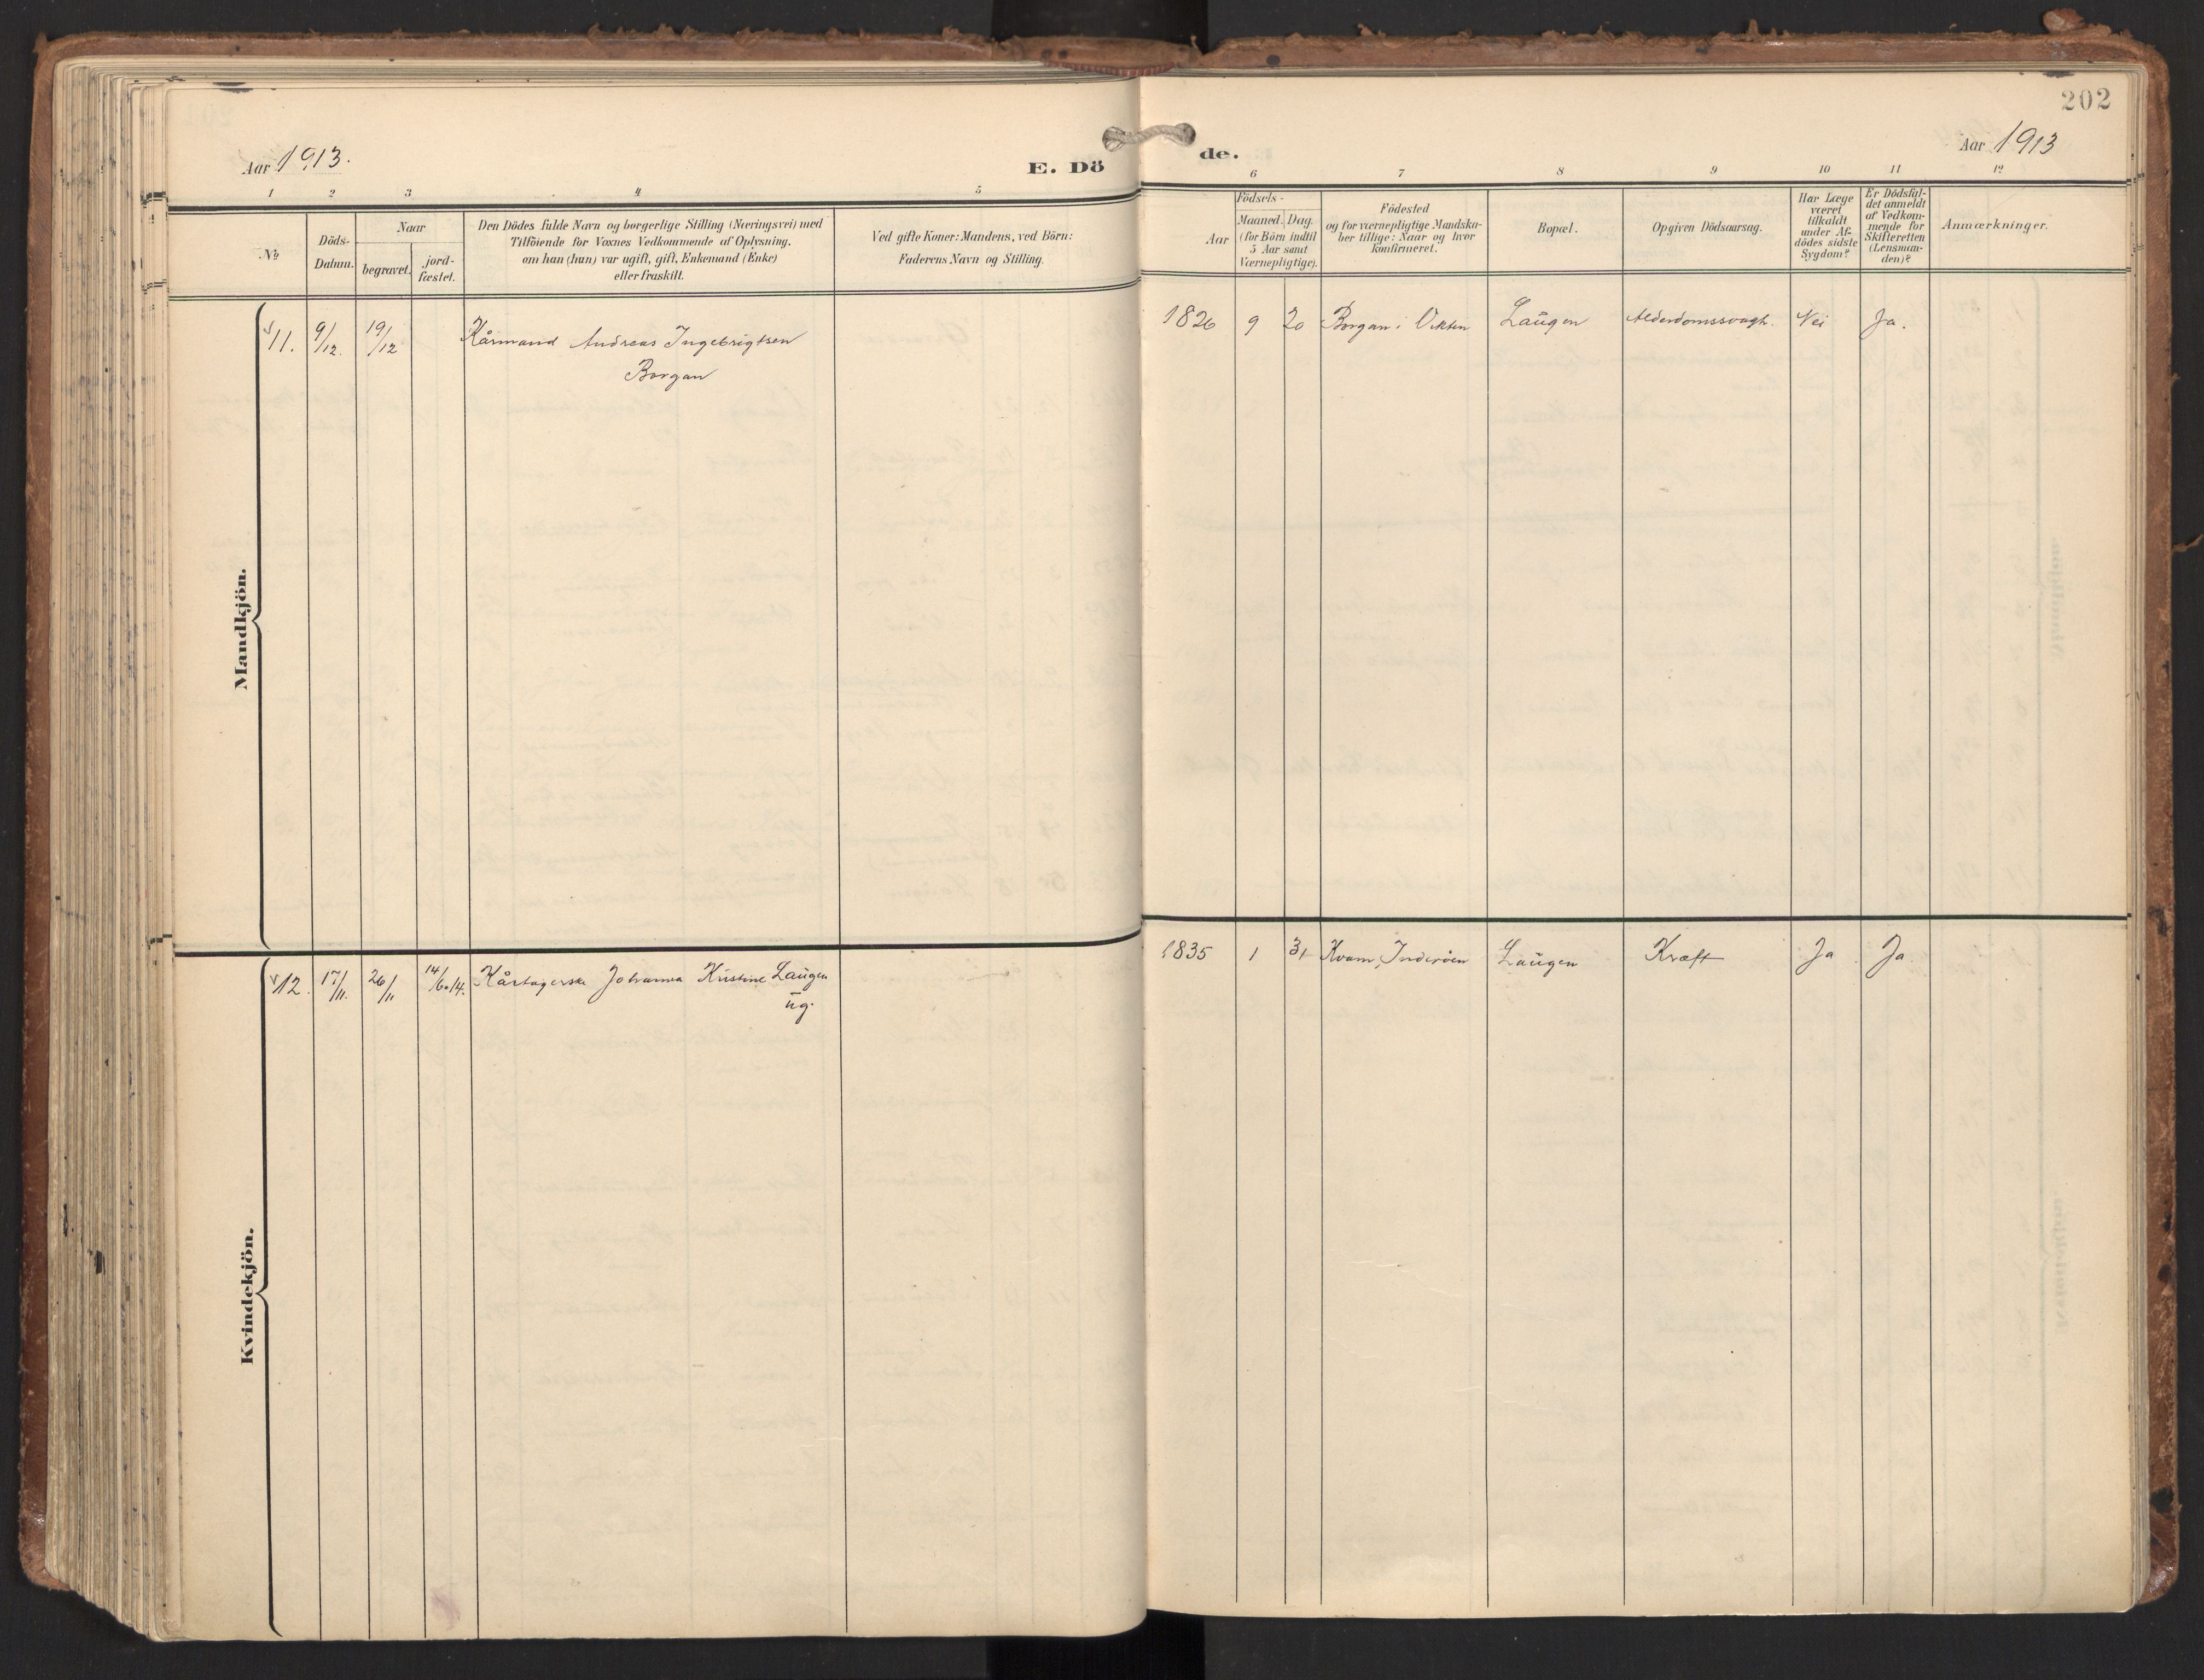 202
Aar 1913.
E. Dö
de.
Aar 1913
1 2 3 4 5
6 7 8 9 10 11 12
No
Döds-
Datum.
Naar
begravet.
jord-
fæstet.
Den Dödes fulde Navn og borgerlige Stilling (Næringsvei) med
Tilföiende for Voxnes Vedkommende af Oplysning,
om han (hun) var ugift, gift, Enkemand (Enke)
eller fraskilt.
Ved gifte Koner: Mandens, ved Börn:
Faderens Navn og Stilling.
Födsels-
Aar
Maaned. Dag.
(for Börn indtil
5 Aar samt
Værnepligtige).
Födested
og for værnepligtige Mandska-
ber tillige: Naar og hvor
konfirmeret.
Bopæl.
Opgiven Dödsaarsag.
Har Læge
været
tilkaldt
under Af-
dödes sidste
Sygdom?
Er Dödsfal-
det anmeldt
af Vedkom-
mende for
Skifteretten
(Lensman-
den)?
Anmærkninger.
Mandkjön.
11. 9/12. 19/12 Kårmand Andreas Ingebrigtsen
Borgan
1826 9 20 Borgan i Vikten Laugen Alderdomssvagh. Nei Ja.
Kvindekjön.
12. 17/11. 26/11 14/6.14. Kårtagerske Johanna Kristine Laugen
ug.
1835 1 31 Kvam, Inderöen Laugen Kræft Ja Ja.